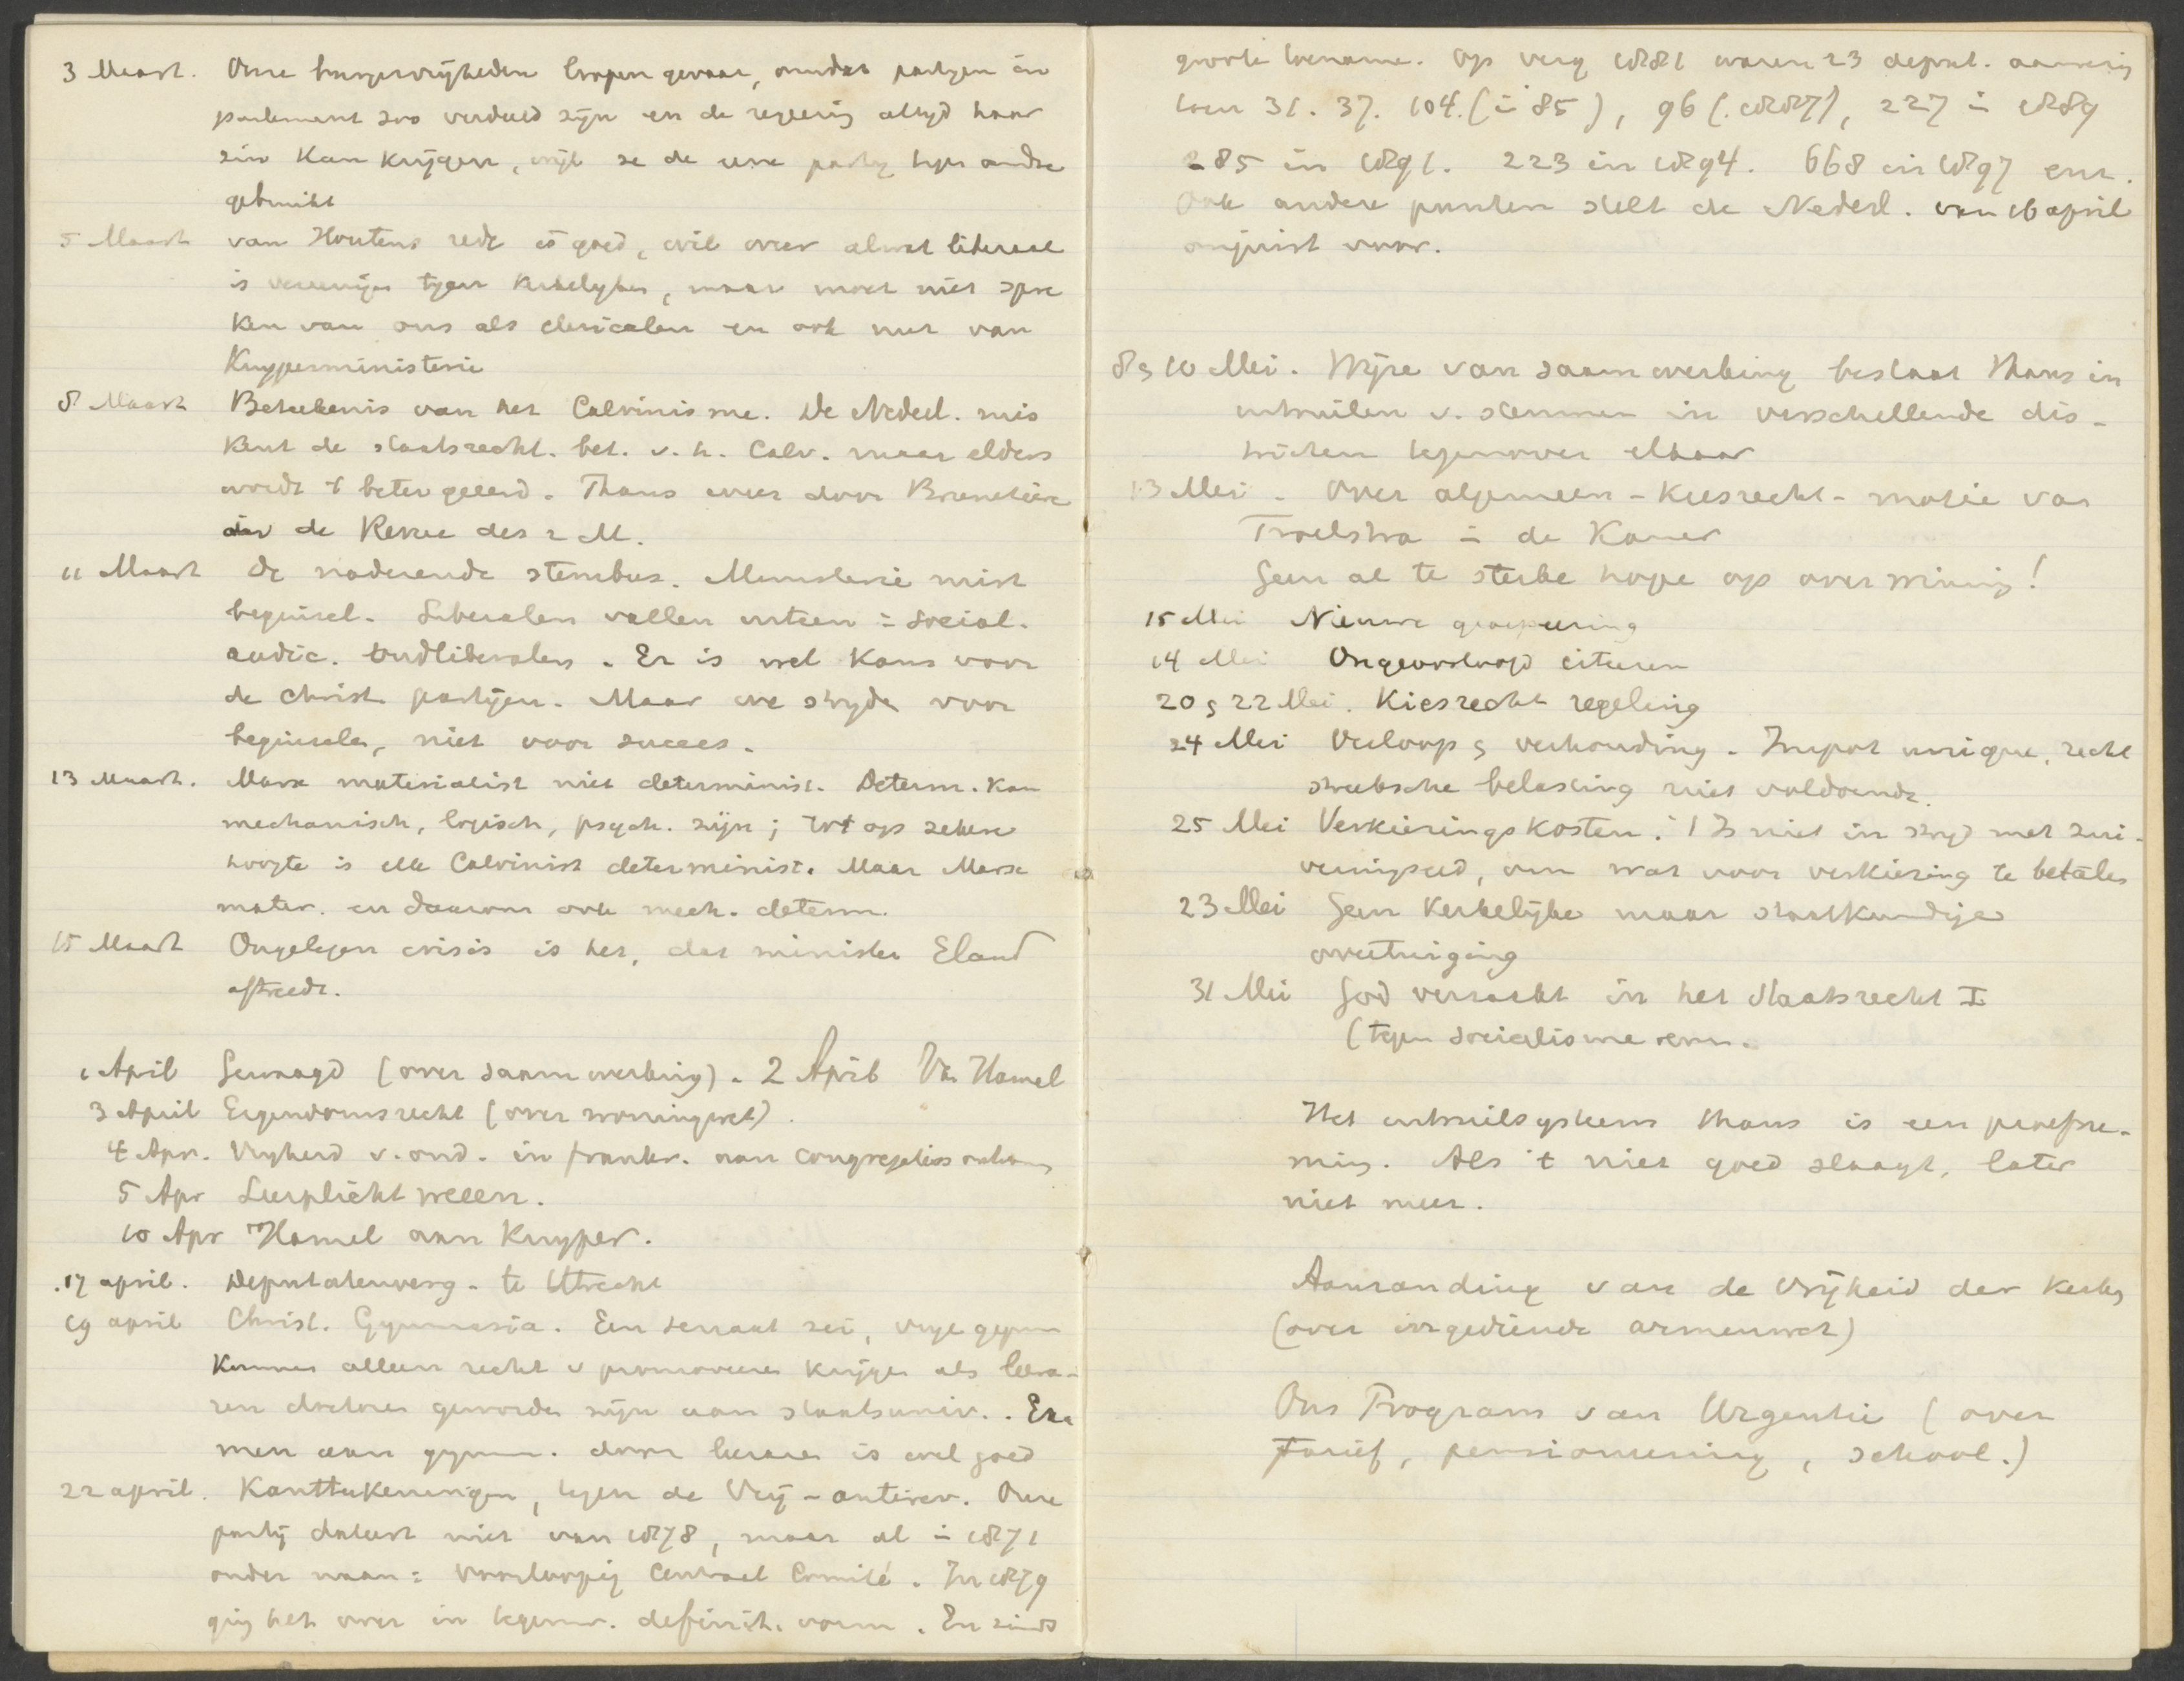 3 Maart. Onze burgervrijheden loopen gevaar, omdat partijen in
parlement zoo verdeeld zijn en de regeering altijd haar
zin kan krijgen, wijl ze de eene partij tegen andre
gebruikt
5 Maart van Houtens rede is goed, wil weer alwat liberaal
is vereenigen tegen kerkelijken, maar moet niet spre
ken van ons als clericalen en ook niet van
Kuyperministerie
8 Maart Beteekenis van het Calvinisme. De Nederl. mis
kent de staatsrecht. bet. v. h. Calv. maar elders
wordt 't beter geëerd. Thans weer door Brunetière
in de Revue des 2 M.
11 Maart De naderende stembus. Ministerie mist
beginsel. Liberalen vallen uiteen = social.
radic. oudliberalen. Er is wel kans voor
de christ. partijen. Maar we strijden voor
beginselen, niet voor succes.
13 Maart. Marx materialist niet determinist. Determ. kan
mechanisch, logisch, psych. zijn; tot op zekere
hoogte is elk Calvinist determinist. Maar Marx
mater. en daarom ook mech. determ.
15 Maart Ongelegen crisis is het, dat minister Eland
aftreedt.
1 April Gevraagd (over saamwerking). 2 April Van Hamel
3 April Eigendomsrecht (over woningwet).
4 Apr. Vrijheid v. ond. in Frankr. aan congregaties
5 Apr Leerplicht weeën.
10 Apr Hamel aan Kuyper.
.17 april. Deputatenverg. te Utrecht
19 april Christ. Gymnasia. Een senaat zei, vrije gymn
kunnen alleen recht v promoveeren krijgen als leera-
ren doctores geworden zijn aan staatsuniv.. Exa
men aan gymn. door leeraren is wel goed
22 april. Kanttekeningen, tegen de Vrij-antirev. Onze
partij dateert niet van 1878, maar al in 1871
onder naam: Voorloopig Centraal Comité. In 1879
ging het over in tegenw. definit. vorm. En sinds
groote toename. Op verg 1881 waren 23 deput. aanwezig
toen 31. 37. 104. (in 85), 96 (.1887), 227 in 1889
285 in 1891. 223 in 1894. 668 in 1897 enz.
Ook andere punten stelt de Nederl. van 16 april
onjuist voor.
8 & 10 Mei. Wijze van saamwerking bestaat thans in
uitruilen v. stemmen in verschellende dis-
tricten tegenover elkaar
13 Mei. Over algemeen-kiesrecht-motie van
Troelstra in de Kamer
Geen al te sterke hope op overwinning!
15 Mei Nieuwe groepeering
14 Mei Ongeoorloofd citeeren
20 & 22 Mei. Kiesrecht regeling
24 Mei Verloop & verhouding. Impot unique, recht
streeksche belasting niet voldoende.
25 Mei Verkiezingskosten. 't Is niet in strijd met zui-
veringseed, om wat voor verkiezing te betalen
23 Mei Geen kerkelijke maar staatkundige
overtuiging
31 Mei God verzaakt in het staatsrecht I
(tegen socialisme
Het uitruilsysteem thans is een proefne-
ming. Als 't niet goed slaagt, later
niet meer.
Aanranding van de vrijheid der kerken
(over ingediende armenwet)
Ons Program van Urgentie (over
Tarief, pensioneering, school.)